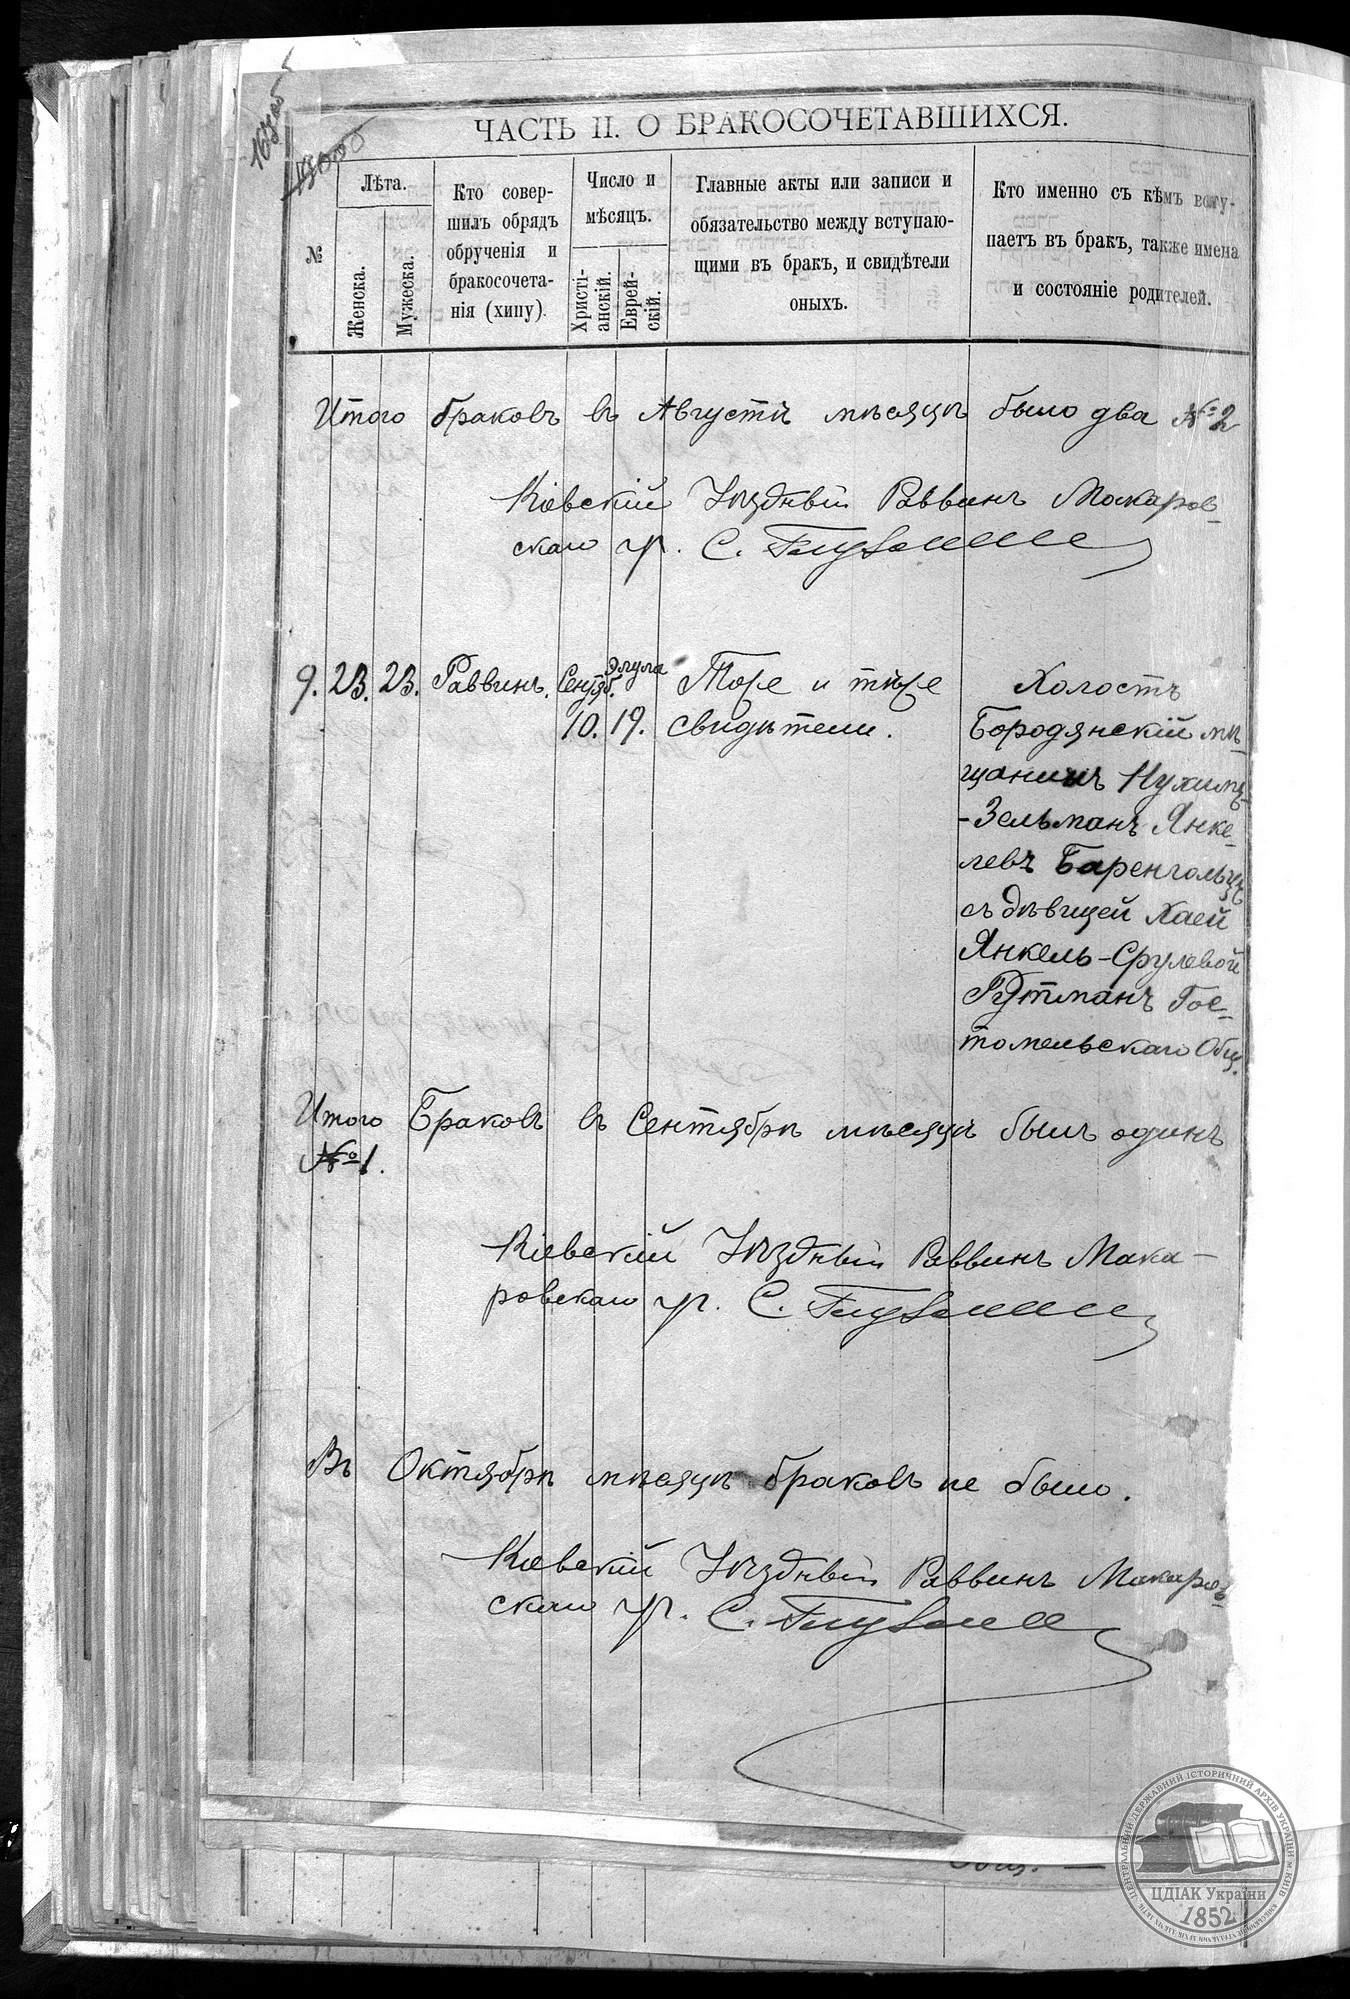 ЧАСТЬ II. О БРАКОСОЧЕТАВШИХСЯ.
№
Лѣта.
Женска.
Мужеска.
Кто совер-
шилъ обрядъ
обрученія и
бракосочета-
нія (хипу).
Число и
мѣсяцъ.
Христі-
анскій.
Еврей-
скій.
Главные акты или записи и
обязательство между вступаю-
щими въ бракъ, и свидѣтели
оныхъ.
Кто именно съ кѣмъ всту-
паетъ въ бракъ, также имена
и состояніе родителей.
Итого браковъ въ Августѣ мѣсяцѣ было два № 2
Кіевскій Уѣздный Раввинъ Макаров-
скаго ур. С.
9. 23. 23. Раввинъ. Сентяб. Элула Торе и тѣре Холостъ
10. 19. свидѣтели. Бородянскій мѣ-
щанинъ Нухимъ-
-Зельманъ Янке-
левъ Баренгольцъ
съ дѣвицей Хаей
Янкель-Срулевой
Рутманъ Гос-
томельскаго Общ.
Итого Браковъ въ Сентябрѣ мѣсяцѣ былъ одинъ
№ 1.
Кіевскій Уѣздный Раввинъ Мака-
ровскаго ур. С.
Въ Октябрѣ мѣсяцѣ браковъ не было.
Кіевскій Уѣздный Раввинъ Макаров-
скаго ур. С.
Общ. —
ЦЕНТРАЛЬНИЙ ДЕРЖАВНИЙ ІСТОРИЧНИЙ АРХІВ УКРАЇНИ М. КИЇВ
ЦДІАК України
1852